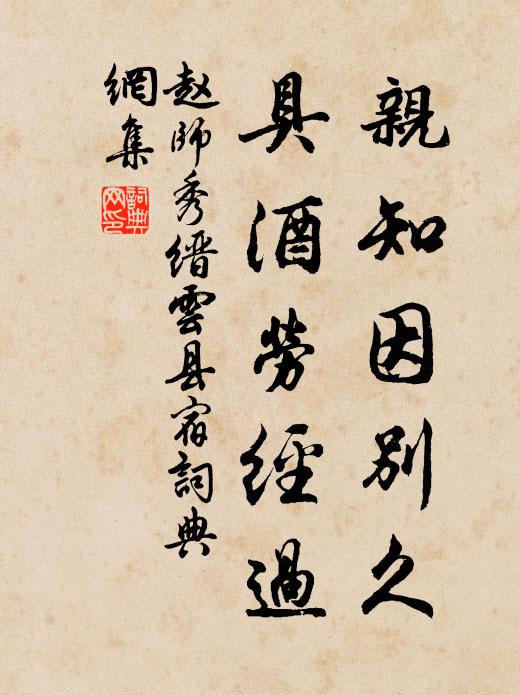 親知因別久
具酒勞經過
赵師秀縉雲县宿詞典
網集
詞典
网印